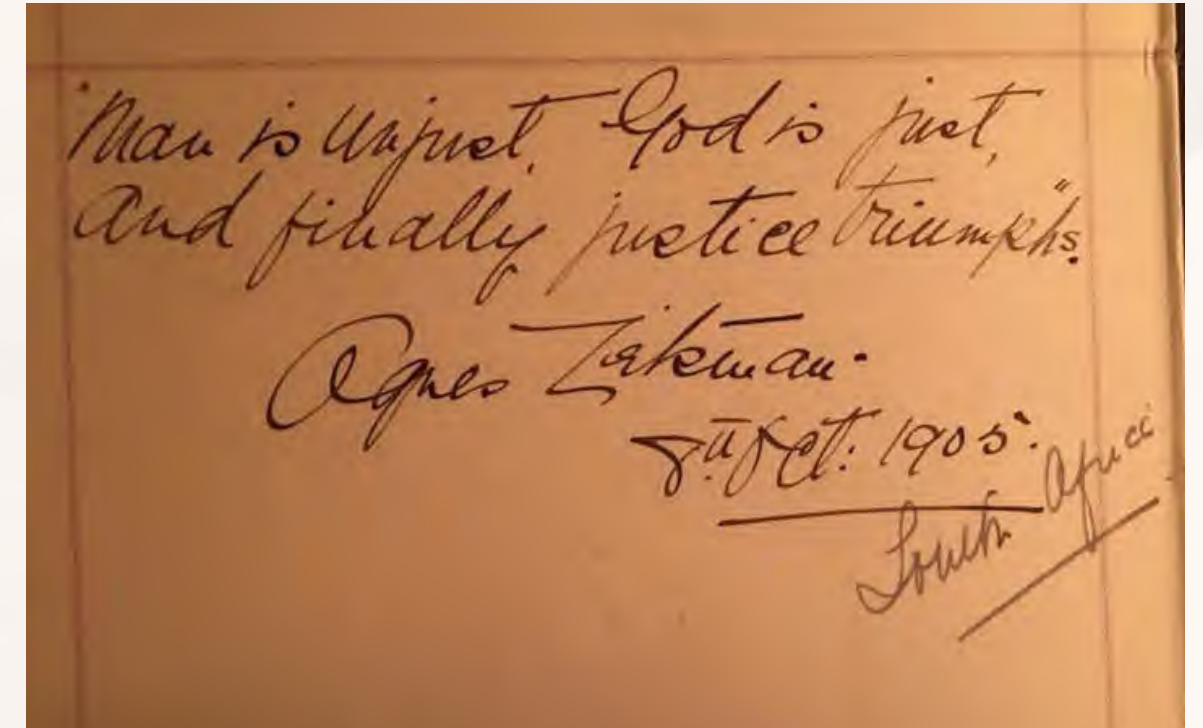 "Man is Unjust, God is just,
And finally justice triumphs."
Agnes Zirkman.
8th Oct: 1905.
South Africa